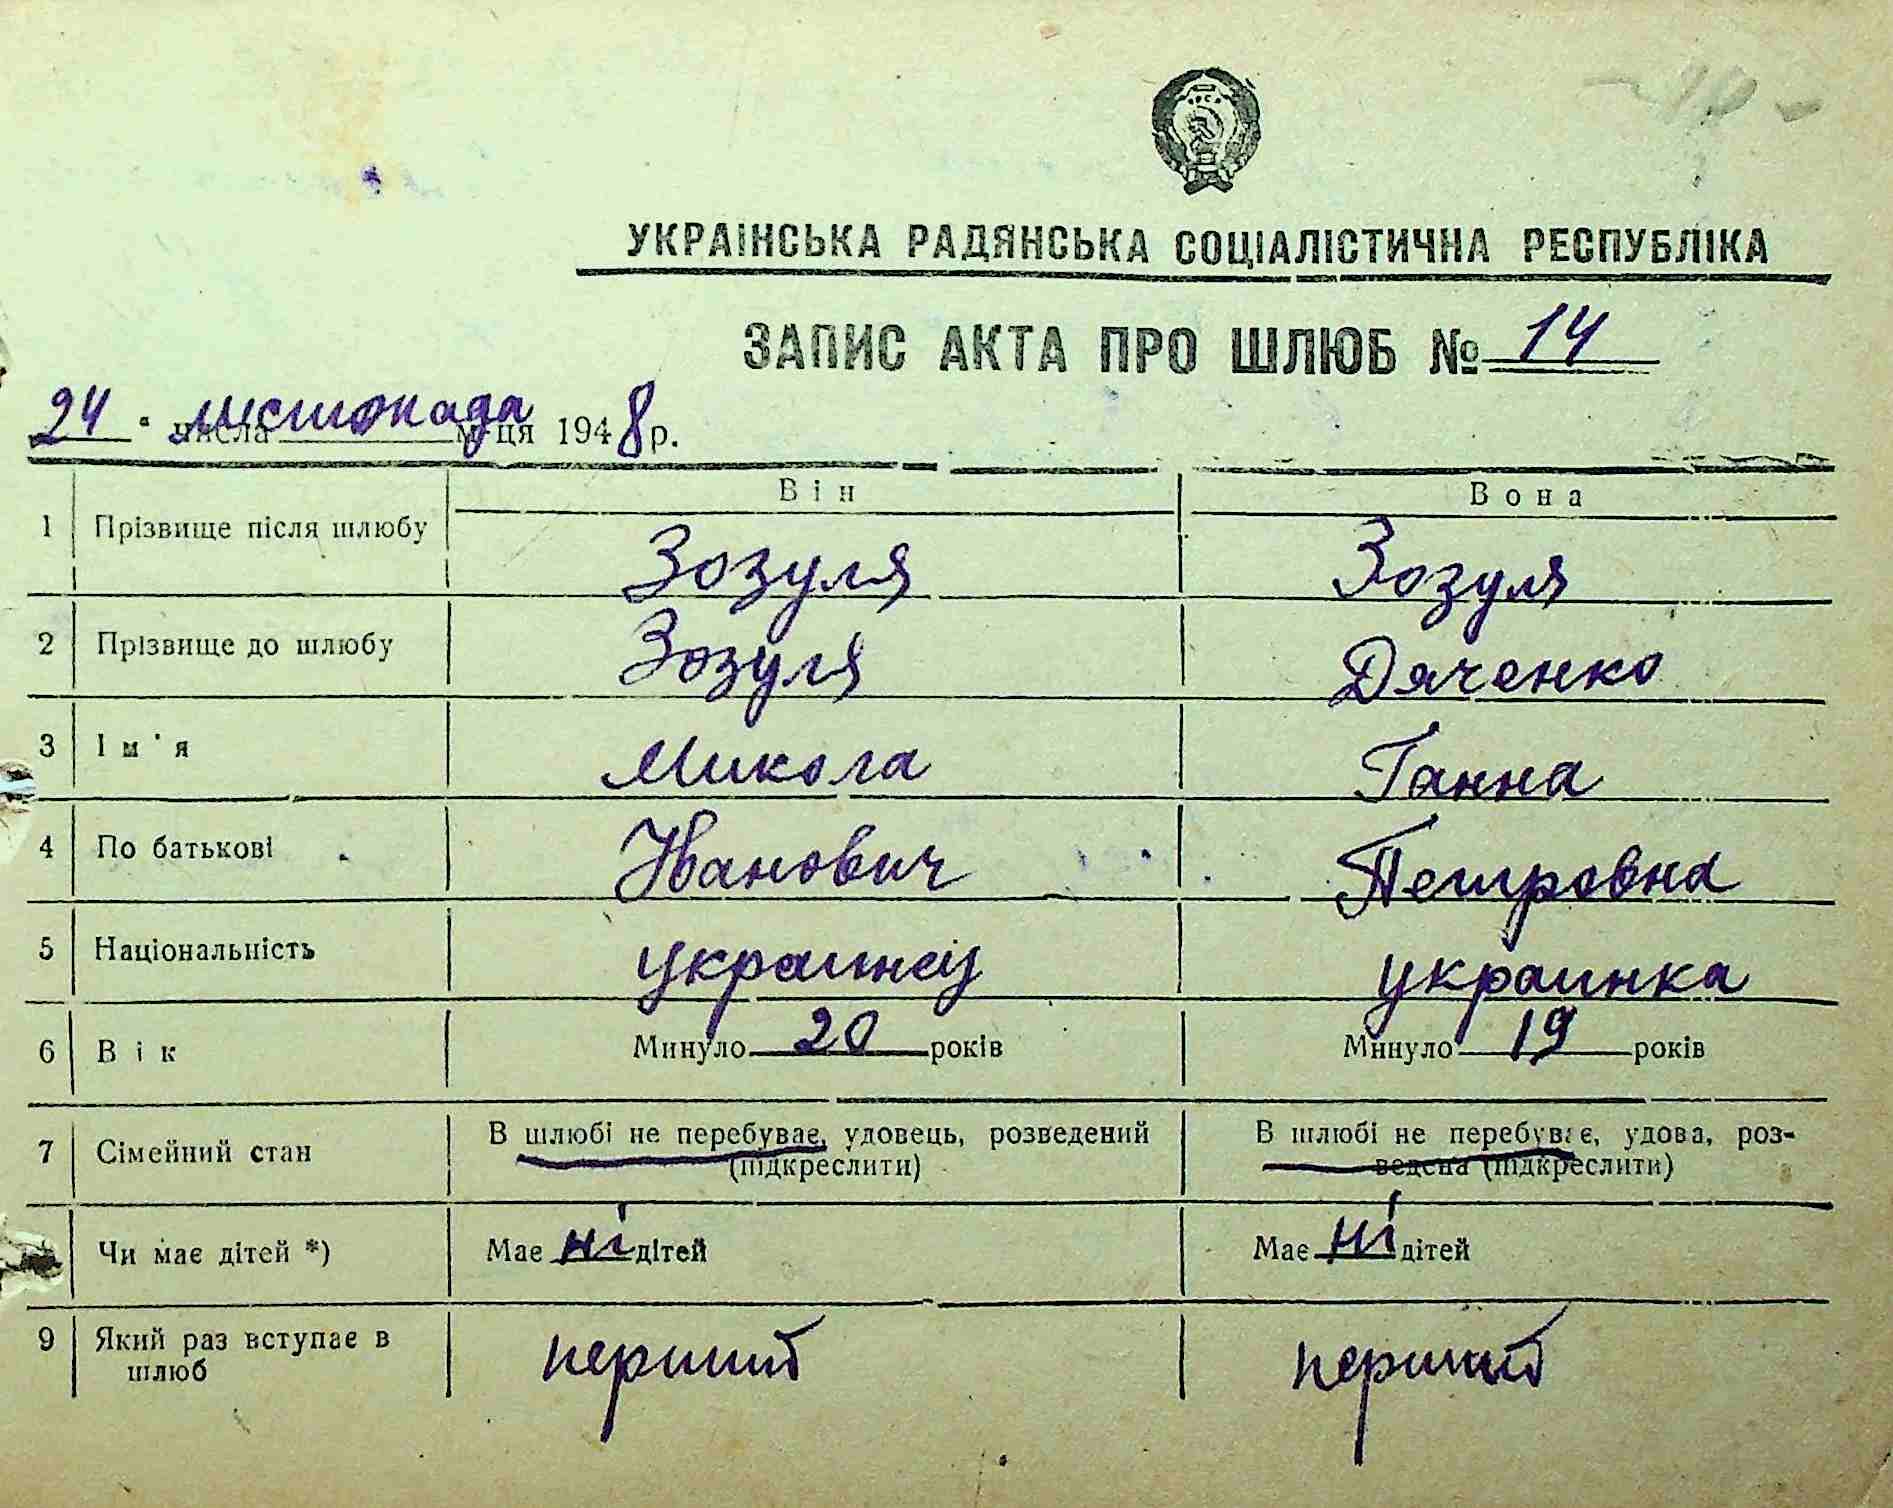 УКРАЇНСЬКА РАДЯНСЬКА СОЦІАЛІСТИЧНА РЕСПУБЛІКА
ЗАПИС АКТА ПРО ШЛЮБ № 14
24 " числа листопада м-ця 1948 р.
Він Вона
1 Прізвище після шлюбу Зозуля Зозуля
2 Прізвище до шлюбу Зозуля Дяченко
3 Ім'я Микола Ганна
4 По батькові Иванович Петровна
5 Національність украинец украинка
6 Вік Минуло 20 років Минуло 19 років
7 Сімейний стан В шлюбі не перебуває, удовець, розведений В шлюбі не перебуває, удова, роз-
(підкреслити) ведена (підкреслити)
Чи має дітей *) Має ні дітей Має ні дітей
9 Який раз вступає в перший перший
шлюб